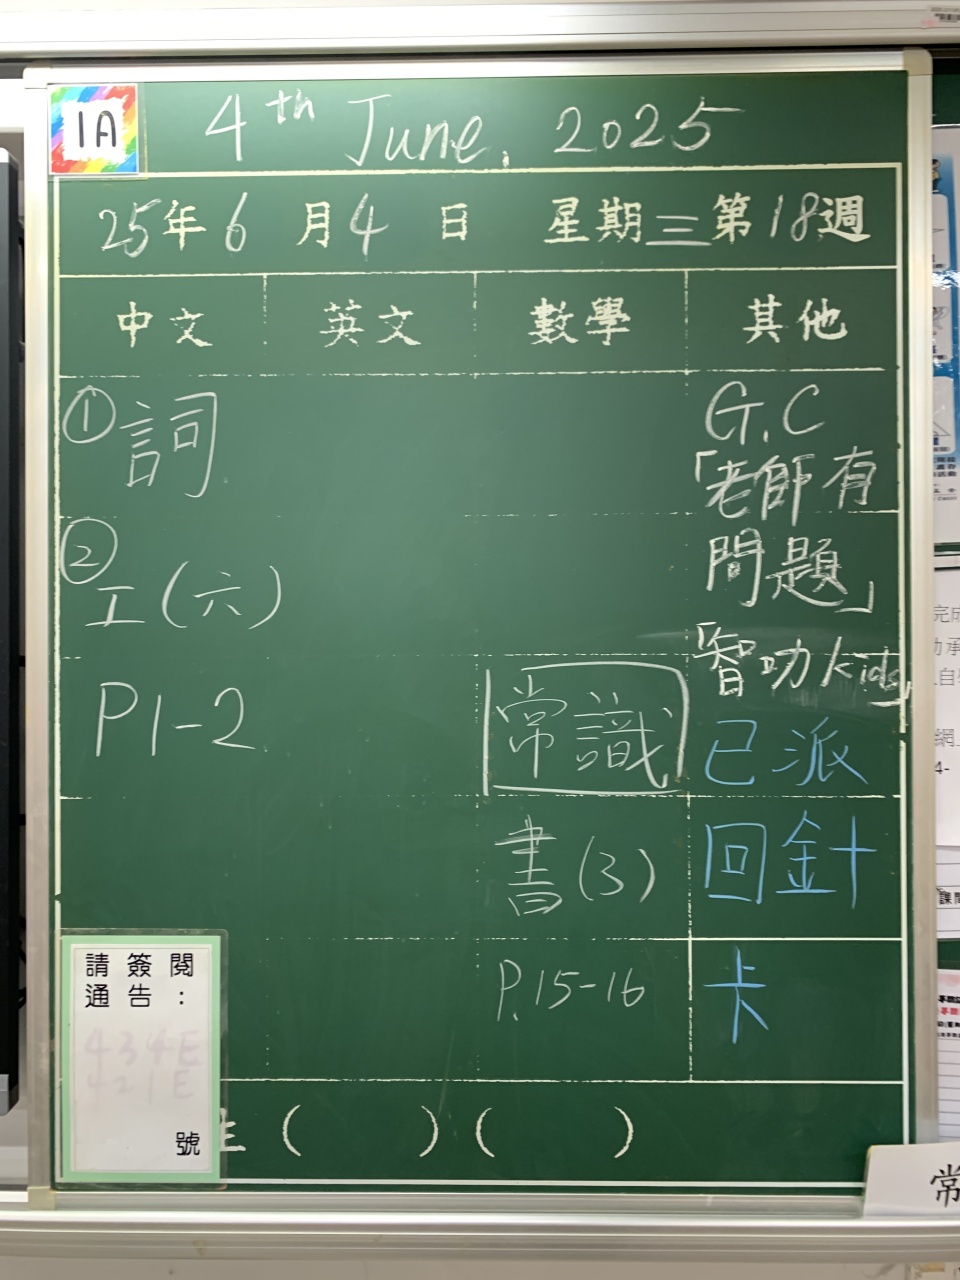 1A
4th June, 2025
25年6月4日 星期三第18週
中文 英文 數學 其他
①詞
②工(六)
P1-2
常識
書(3)
P.15-16
G.C
「老師有
問題」
「智叻kids」
已派
回針
卡
請簽閱
通告:
434E
421E
號
生( )( )
常